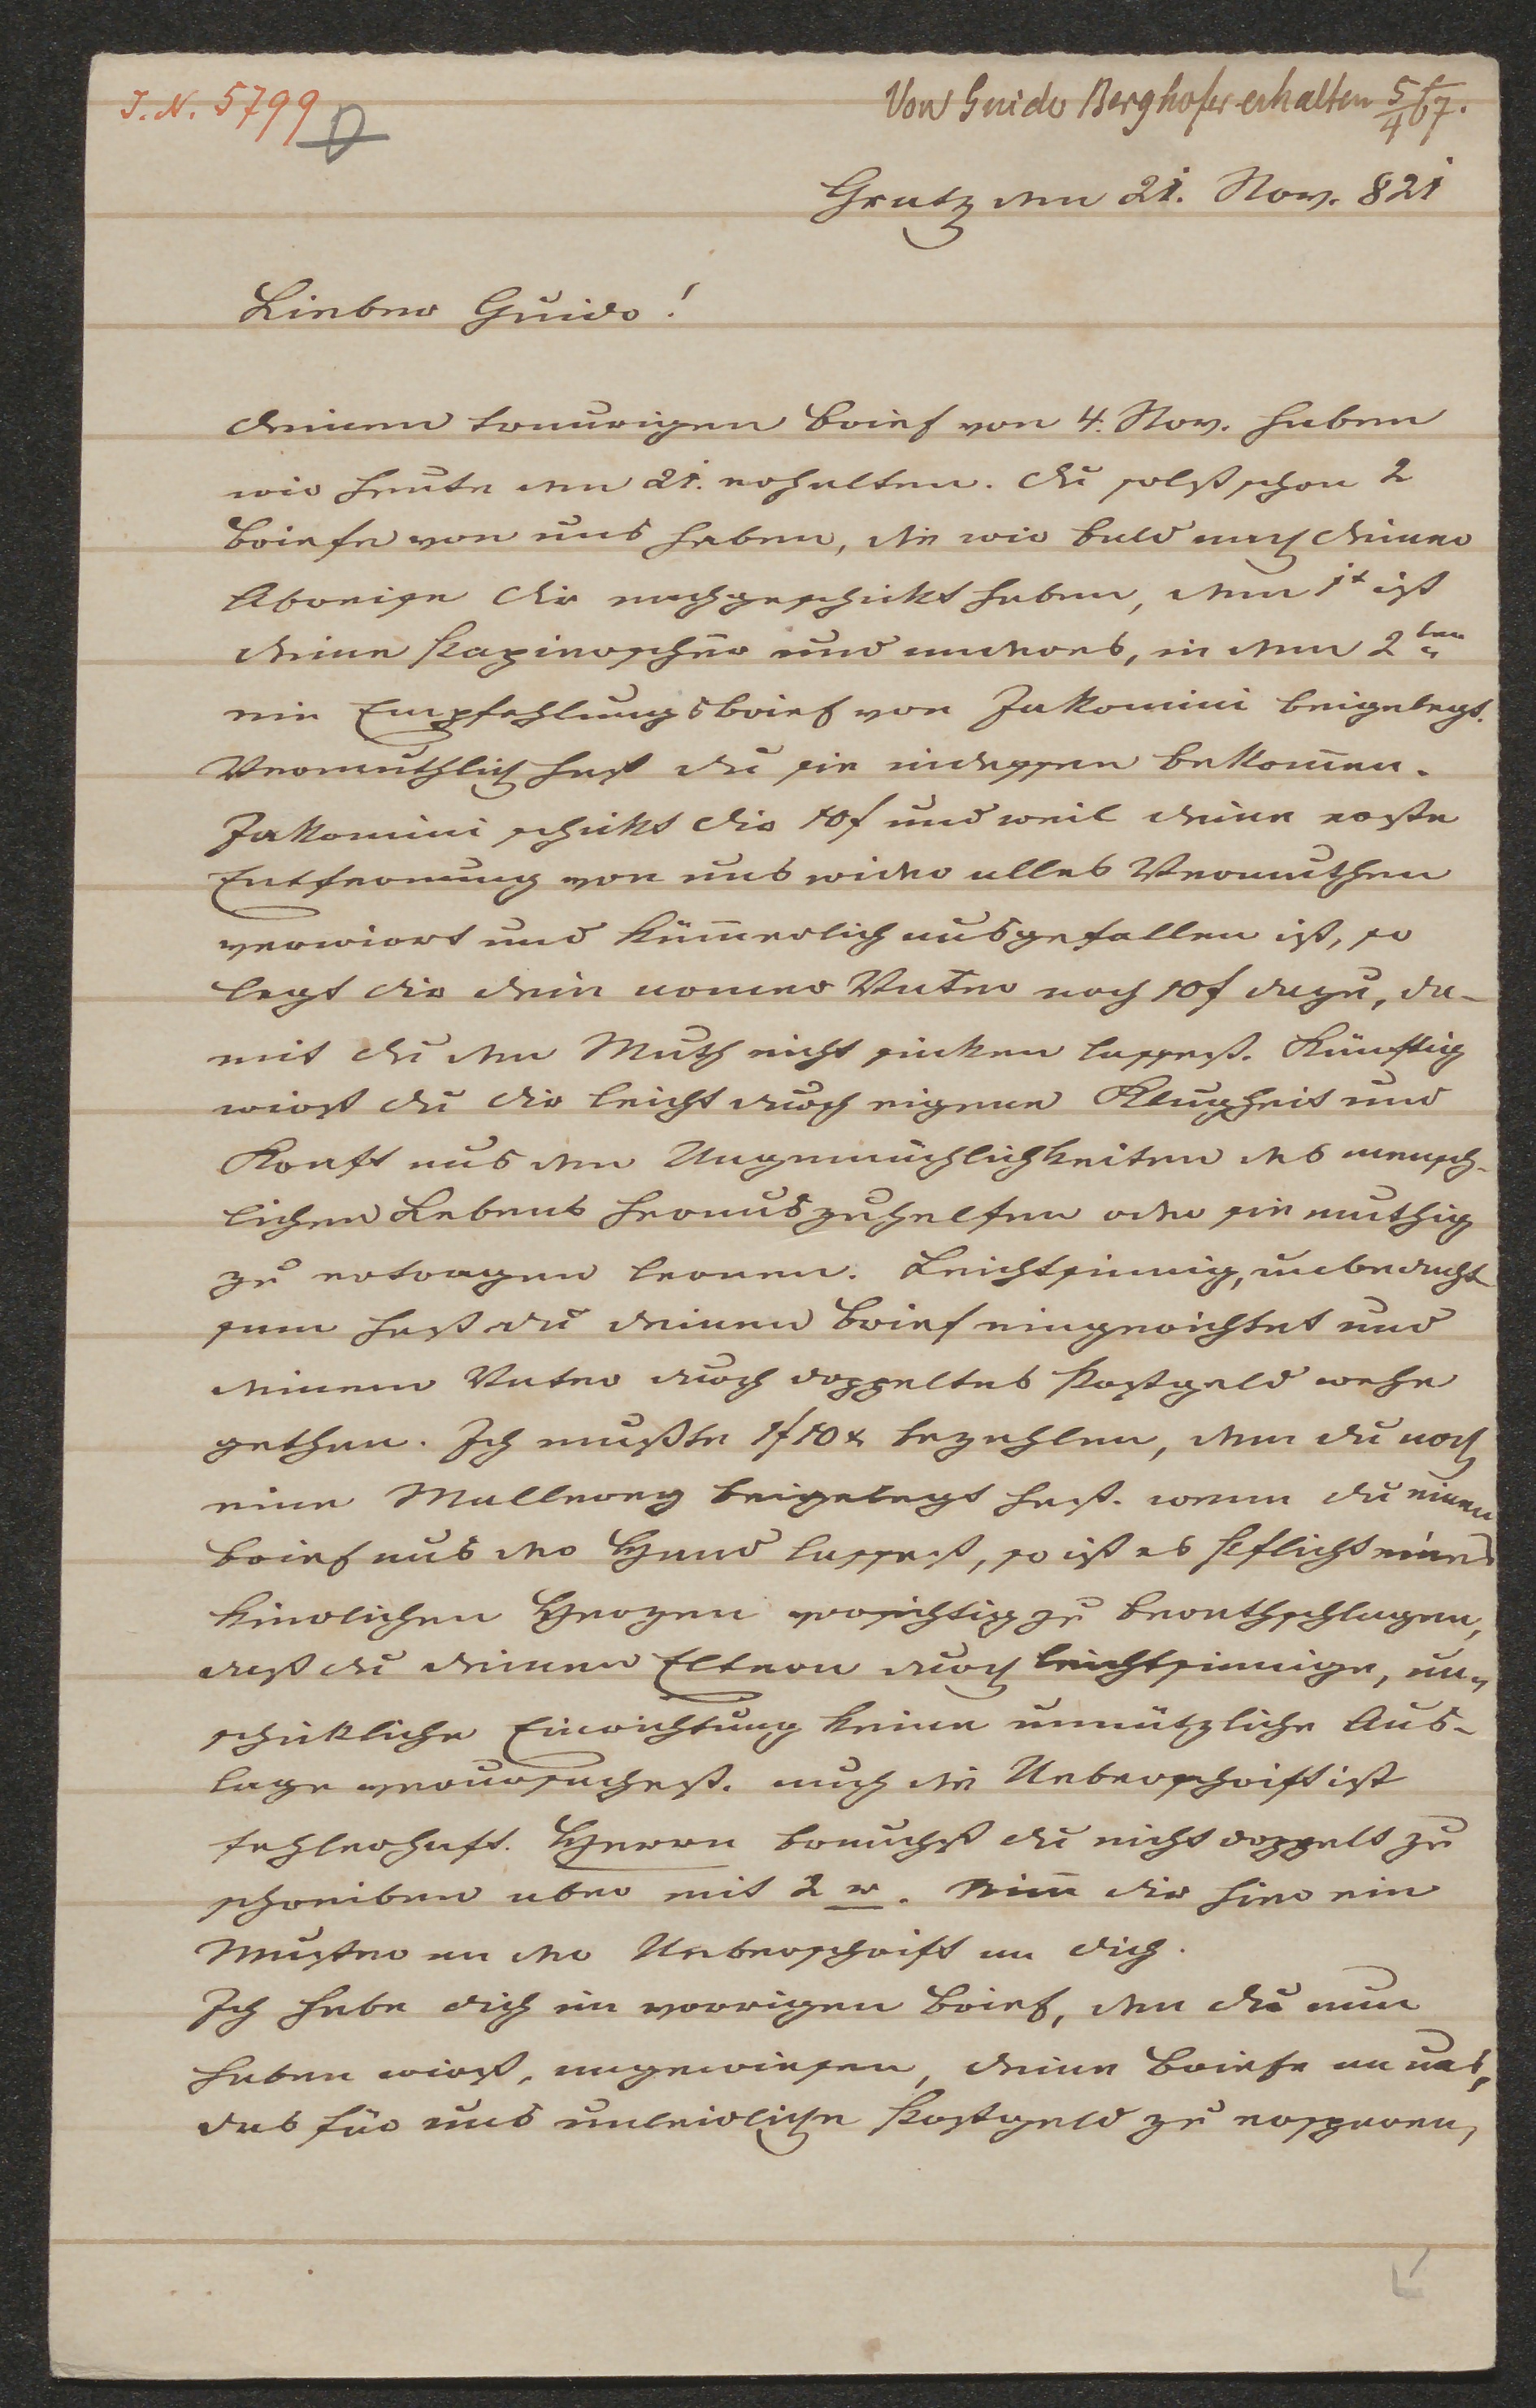 J. N. 5799
Von Guido Berghofer erhalten 5/4 67.
Gratz den 21. Nov. 821
Lieber Guido!
Deinen traurigen Brief von 4. Nov. haben
wir heute den 21. erhalten. Du solst schon 2
Briefe von uns haben, die wir bald nach deiner
Abreise dir nachgeschickt haben, dem 1t ist
deine und anderes, in dem 2ten
ein Empfehlungsbrief von Jakomini beigelegt.
Vermuthlich hast du sie indessen bekom̅en.
Jakomini schickt dir 10f und weil deine erste
Entfernung von uns wider alles Vermuthen
verwirrt und küm̅erlich ausgefallen ist, so
legt dir dein armer Vater noch 10f dazu, da-
mit du den Muth nicht sinken lassest. Künftig
wirst du dir leicht durch eigene Klugheit und
Kraft aus den Ungemächlichkeiten des mensch-
lichen Lebens herauszuhelfen oder sie muthig
zu ertragen lernen. Leichtsinnig, unbedacht
sam hast du deinen Brief eingerichtet und
deinem Vater durch doppeltes Postgeld wehe
gethan. Ich mußte 1f10x bezahlen, dem du noch
eine beigelegt hast. wenn du einen
Brief aus der Hand lassest, so ist es Pflicht eines
kindlichen Herzen vorsichtig zu berathschlagen,
daß du deinen Eltern durch leichtsinnige, un-
schickliche Einrichtung keine unnützliche Aus-
lage verursachest. auch die Ueberschrift ist
fehlerhaft. Herrn brauchst du nicht doppelt zu
schreiben aber mit 2 r. Nim̅ dir hier ein
Muster an der Ueberschrift an dich.
Ich habe dich im vorrigen Brief, den du nun
haben wirst, angewiesen, deine Briefe an uns,
das für uns unleidliche Postgeld zu ersparen,